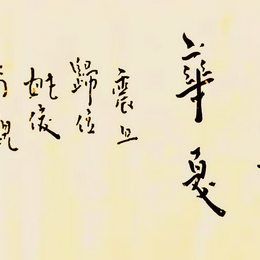 華夏
震旦
歸位
姚俊